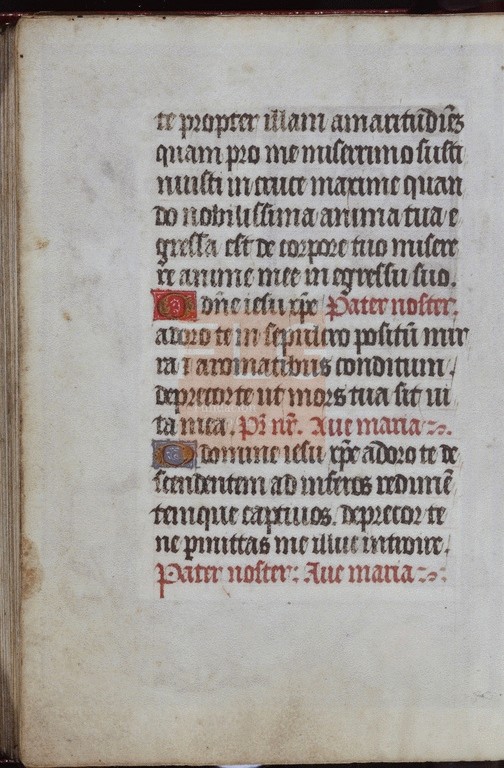 te propter illam amaritudinē
quam pro me miserrimo susti
nuisti in cruce maxime quan
do nobilissima anima tua e
gressa est de corpore tuo misere
re anime mee in egressu suo.
O dn̄e iesu xp̄e Pater noster.
adoro te in sepulcro positū mir
ra ⁊ aromatibus conditum.
deprecor te ut mors tua sit ui
ta mea. Pr̄ nr̄. Aue maria
O domine iesu xp̄e adoro te de
scendentem ad inferos redimē
temque captiuos. deprecor te
ne p̱mittas me illuc introire.
Pater noster: Aue maria